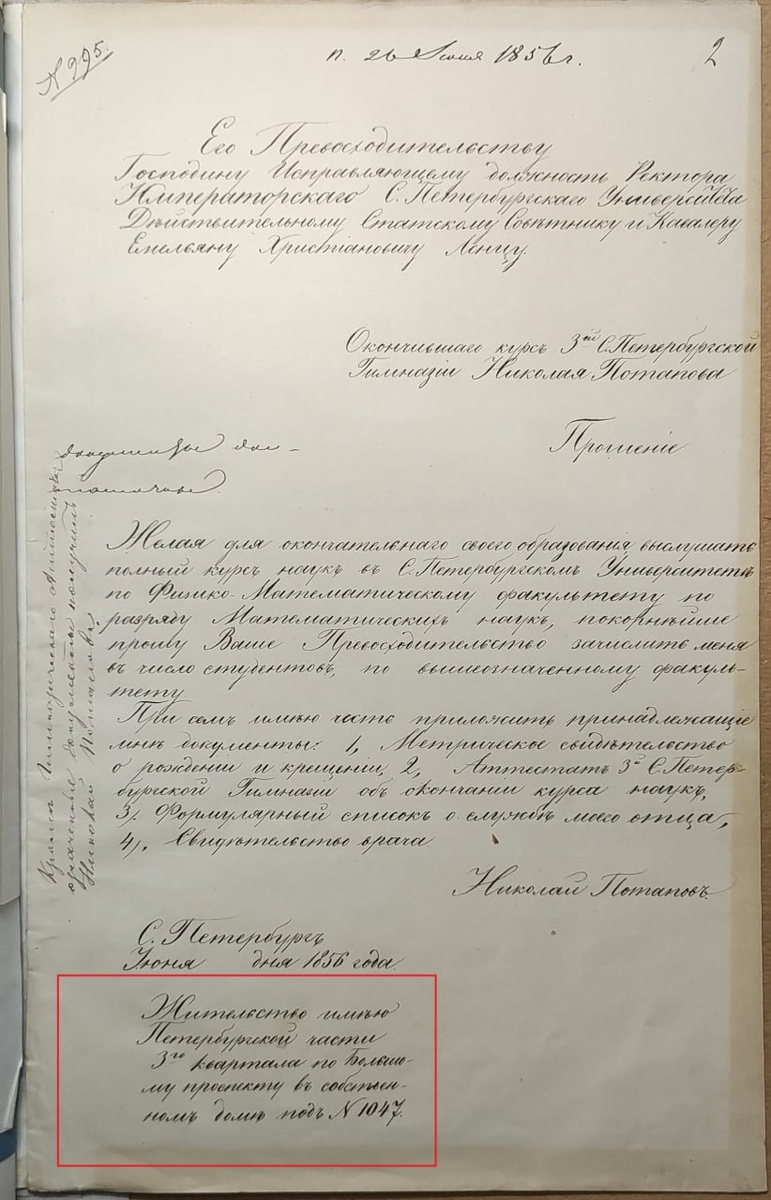 № 995.
п. 26 Июня 1856 г.
2
Его Превосходительству
Господину Исправляющему должность Ректора
Императорскаго С. Петербургскаго Университета
Дѣйствительному Статскому Совѣтнику и Кавалеру
Емельяну Христіановичу Ленцу.
Окончившаго курсъ 3ей С. Петербургской
Гимназіи Николая Потапова
Прошеніе
документы
Желая для окончательнаго своего образованія выслушать
полный курсъ наукъ въ С. Петербургскомъ Университетѣ
по Физико-Математическому факультету по
разряду Математическихъ наукъ, покорнѣйше
прошу Ваше Превосходительство зачислить меня
въ число студентовъ, по вышеозначенному факуль-
тету
При семъ имѣю честь приложить принадлежащіе
мнѣ документы: 1, Метрическое свидѣтельство
о рожденіи и крещеніи, 2, Аттестатъ 3й С. Петер-
бургской Гимназіи объ окончаніи курса наукъ,
3/. Формулярный списокъ о службѣ моего отца,
4/. Свидѣтельство врача.
Николай Потаповъ.
С. Петербургъ
Іюня дня 1856 года.
Жительство имѣю
Петербургской части
3го квартала по Большо-
му проспекту въ собствен-
номъ домѣ подъ № 1047.
Кромѣ Гимназическаго Аттестата
означенные документы получилъ
Николай Потаповъ